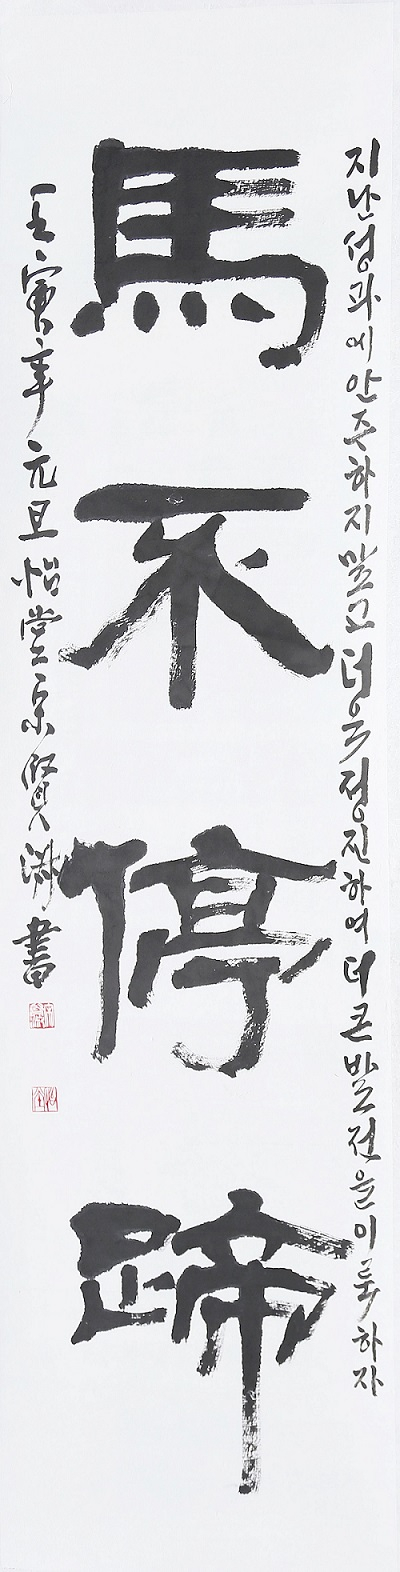 지난 성과에 안주하지 말고 더욱 정진하여 더 큰 발전을 이룩하자
馬不停蹄
壬寅年元旦怡堂宋賢 書